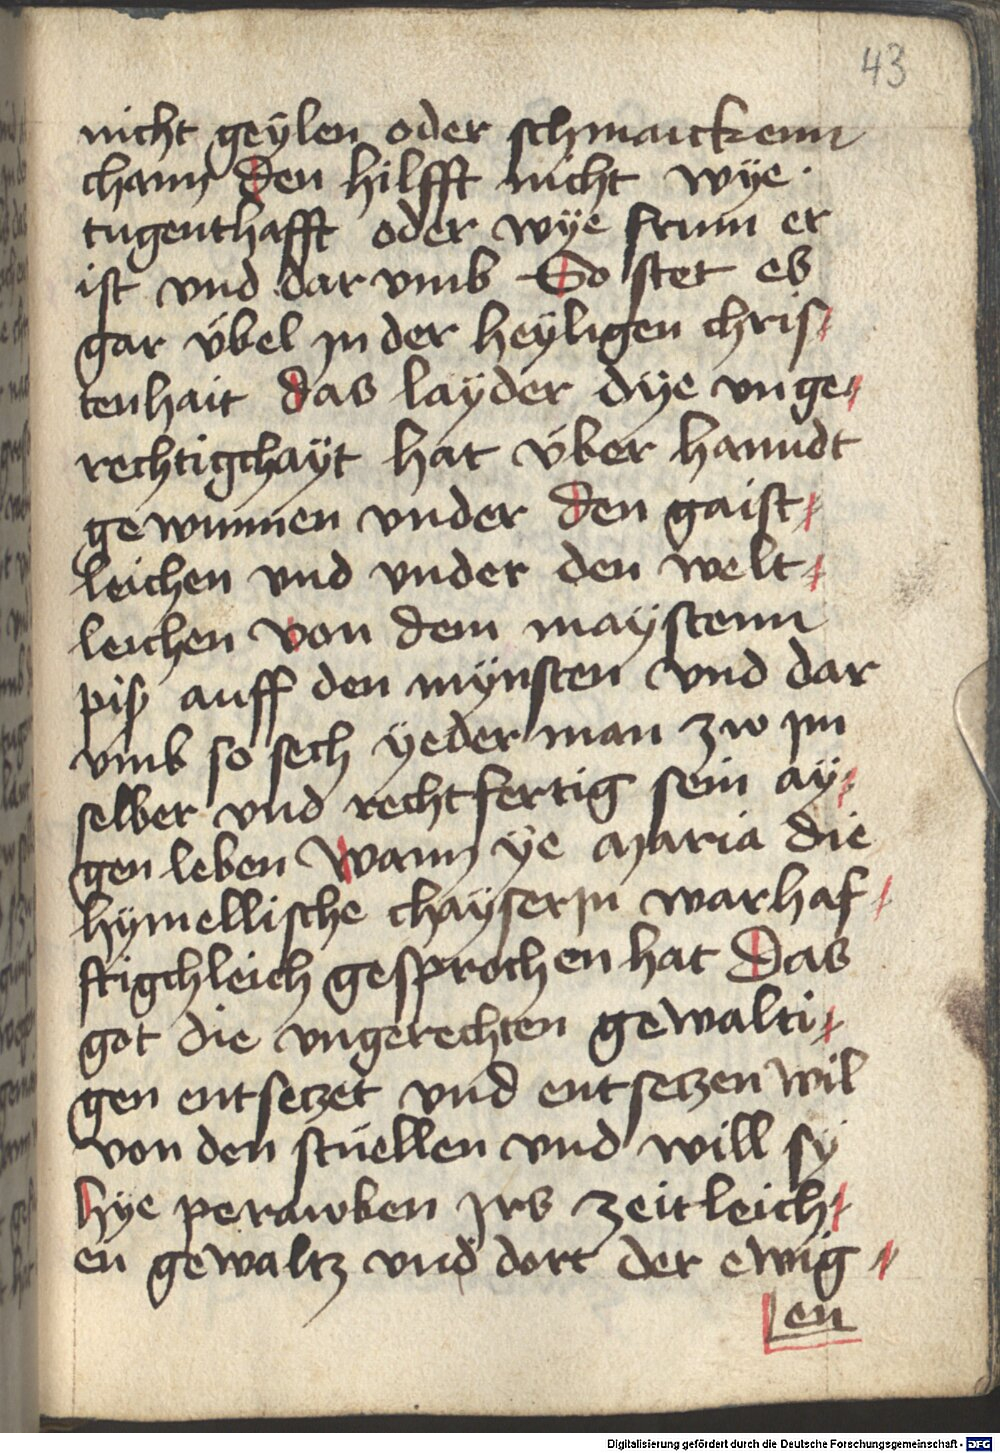 43
nicht geÿlen oder schmaickenn
chann den hilfft nicht wÿe
tugenthafft oder wÿe frum er
ist vnd dar vmb So stet es
gar v́bel jn der heÿligen chris⸗
tenhait das laÿder dÿe vnge⸗
rechtigchaÿt hat v́ber hanndt
gewunnen vnder den gaist⸗
leichen vnd vnder den welt⸗
leichen von dem maÿstenn
pis auff den mÿnsten vnd dar
vmb so sech ÿeder man zw jm
selber vnd rechtfertig sein aÿ⸗
gen leben Wann ÿe Maria die
hÿmellische chaÿserjn warhaf⸗
ftigchleich gesprochen hat Das
got die vngerechten gewalti⸗
gen entseczet vnd entseczen wil
von den stüellen vnd will sÿ
hÿe perawben jrs zeitleich⸗
en gewaltz vnd dort der ewig⸗
en
Digitalisierung gefördert durch die Deutsche Forschungsgemeinschaft - DFG